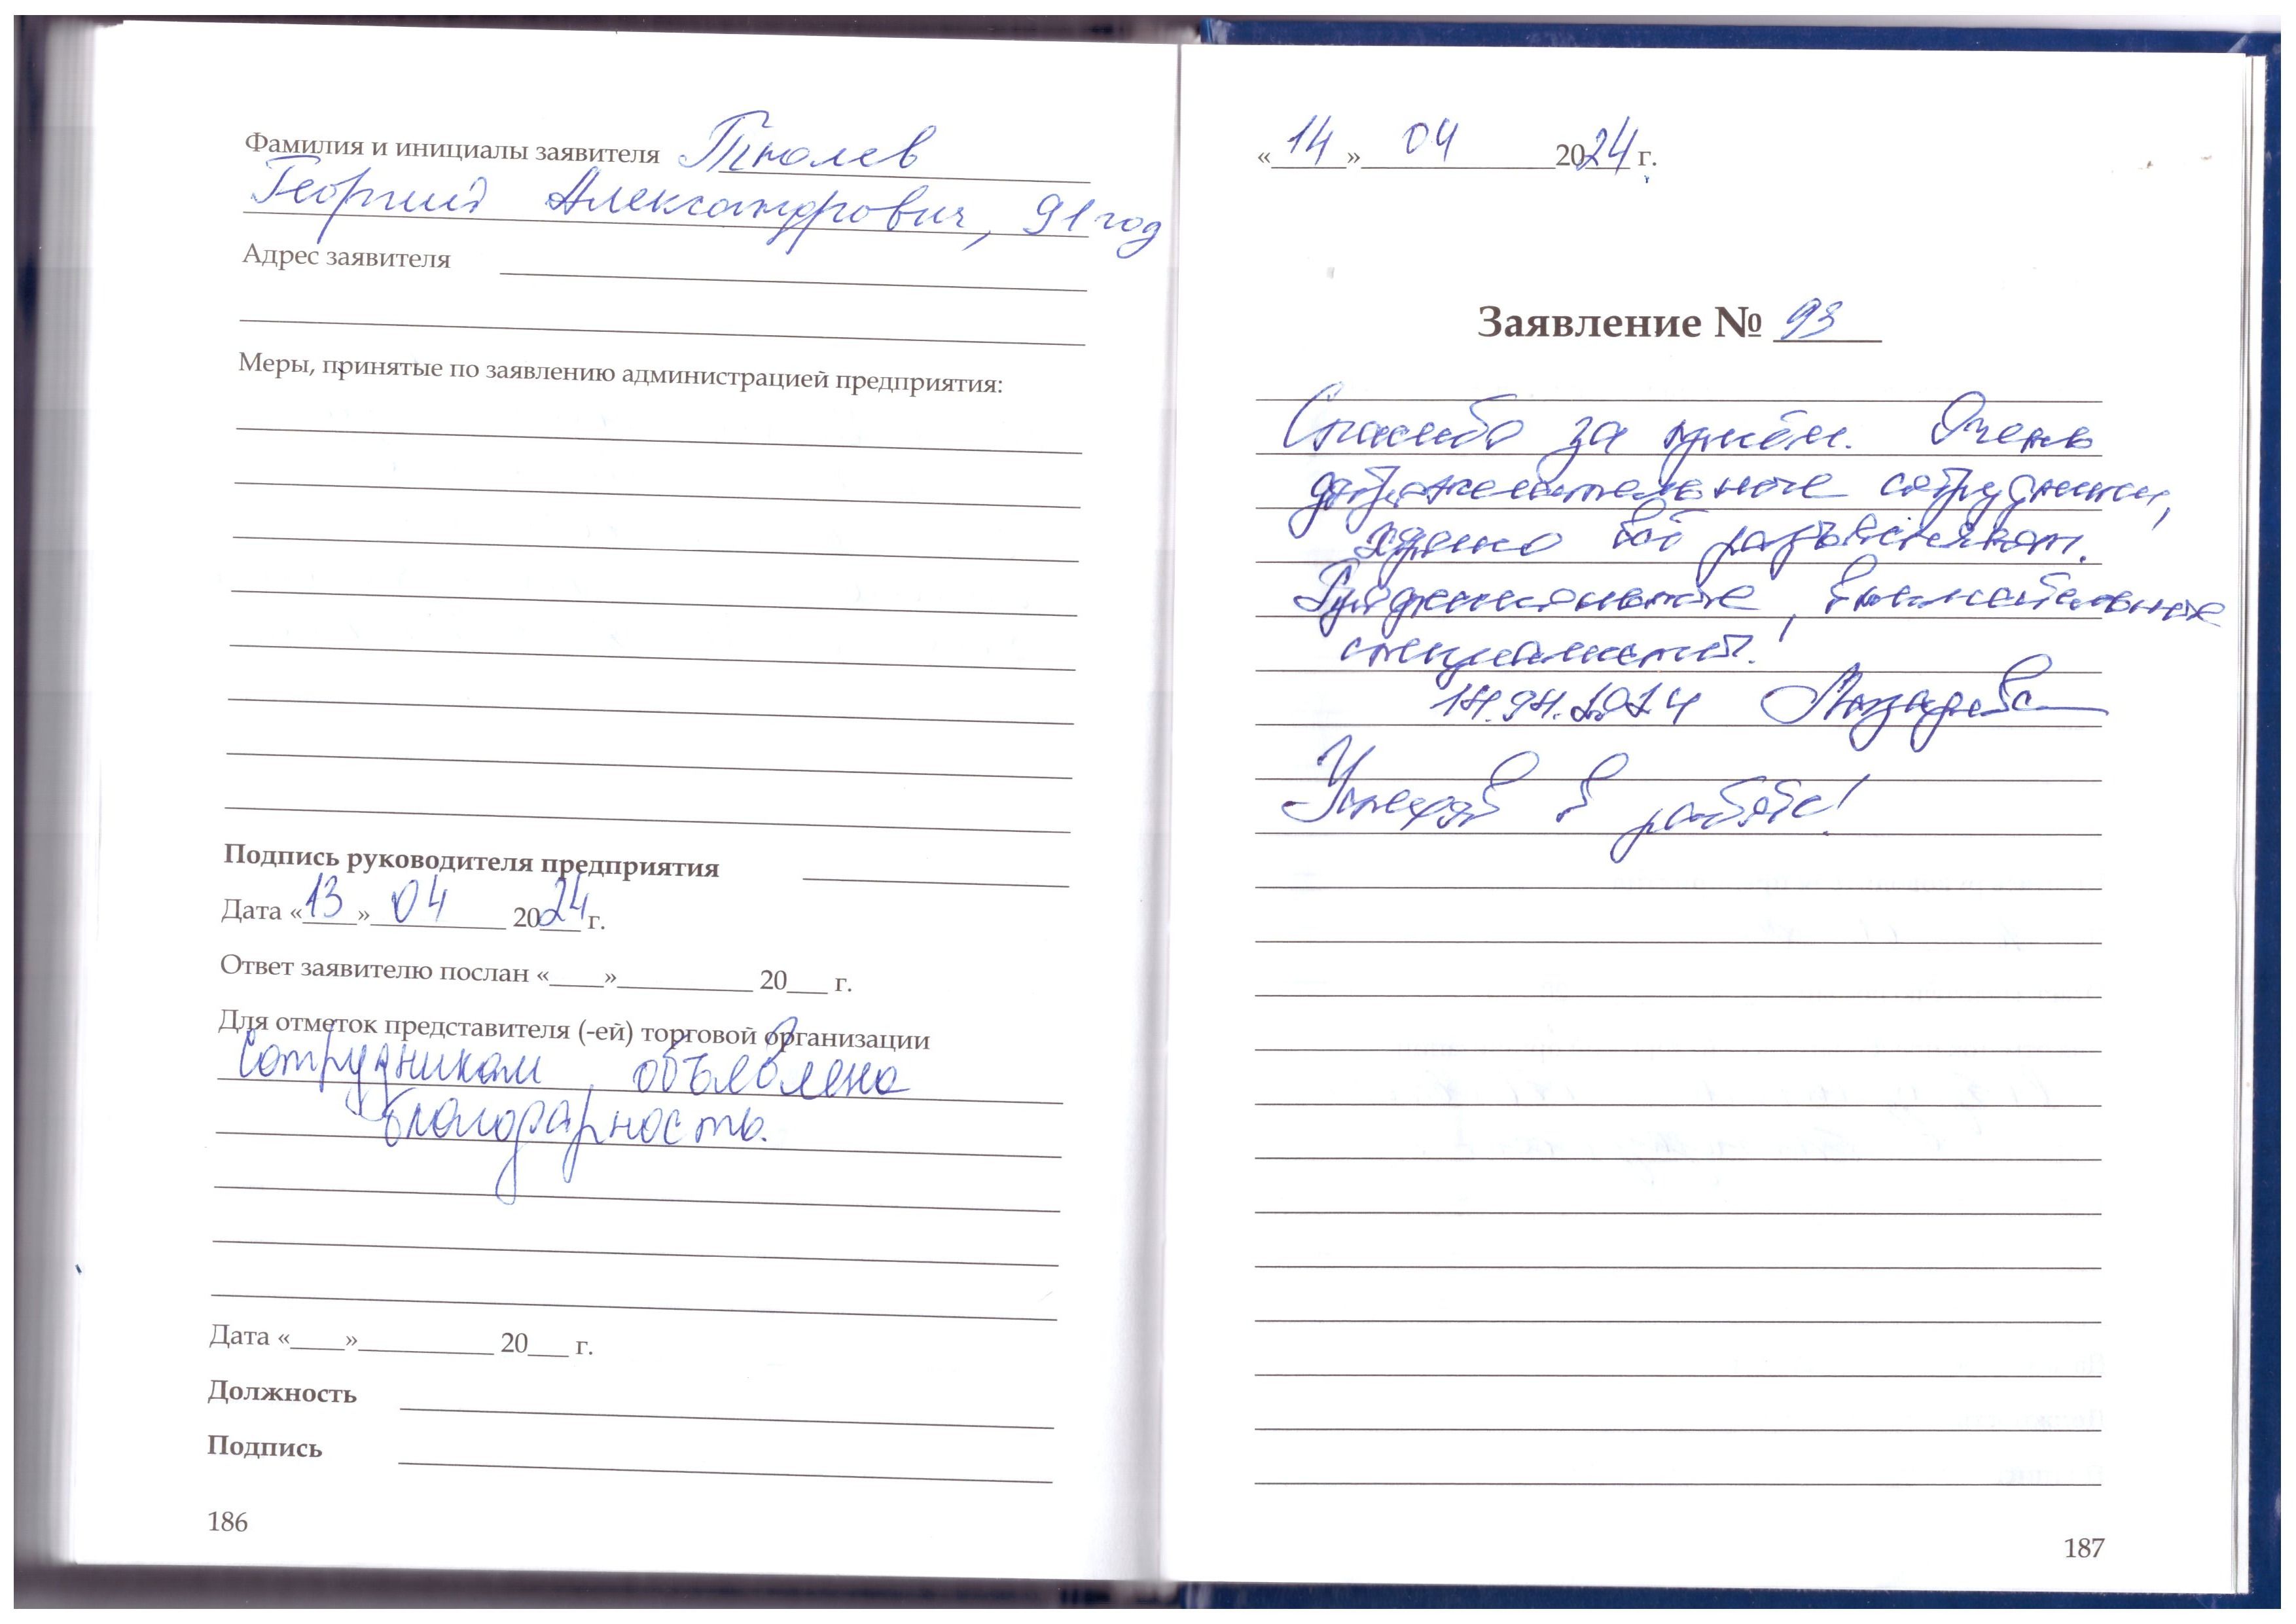 Фамилия и инициалы заявителя
Георгий Александрович, 91 год
Адрес заявителя
Меры, принятые по заявлению администрацией предприятия:
Подпись руководителя предприятия
Дата «13» 04 2024 г.
Ответ заявителю послан «____»__________ 20___ г.
Для отметок представителя (-ей) торговой организации
Сотрудникам объявлена
благодарность.
Дата «____»__________ 20___ г.
Должность
Подпись
186
«14» 04 2024 г.
Заявление № 93
Спасибо за приём. Очень
доброжелательные сотрудники,
всё разъясняют.
внимательные
специалисты!
14.04.2024
Успехов в работе!
187